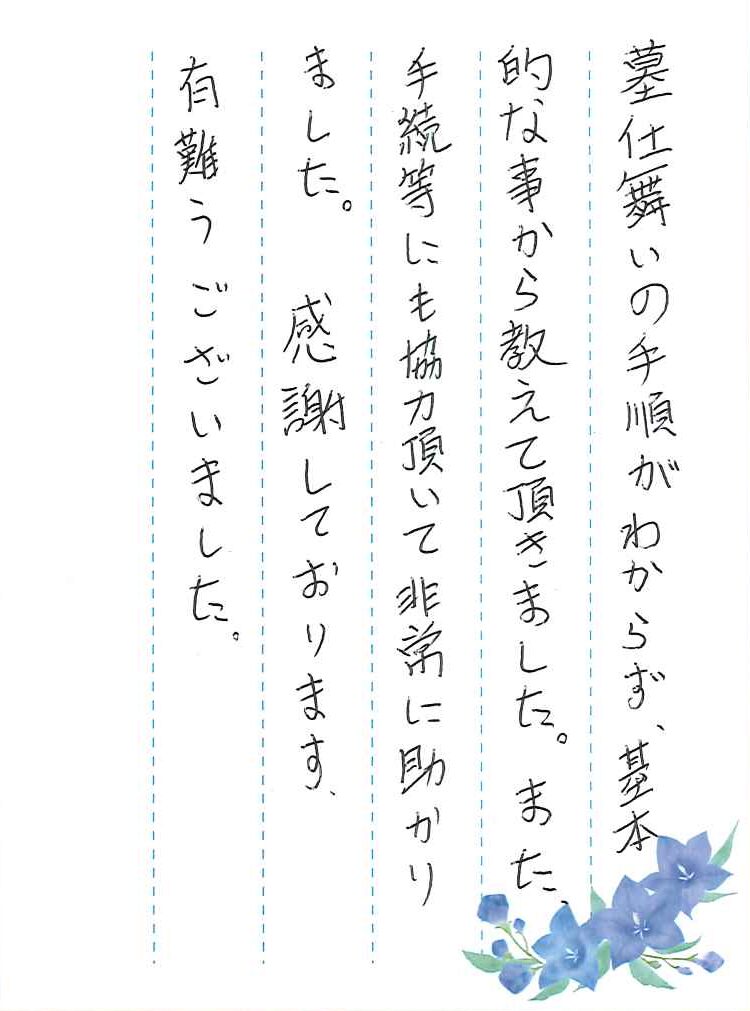 墓仕舞いの手順がわからず、基本
的な事から教えて頂きました。また、
手続等にも協力頂いて非常に助かり
ました。 感謝しております、
有難うございました。